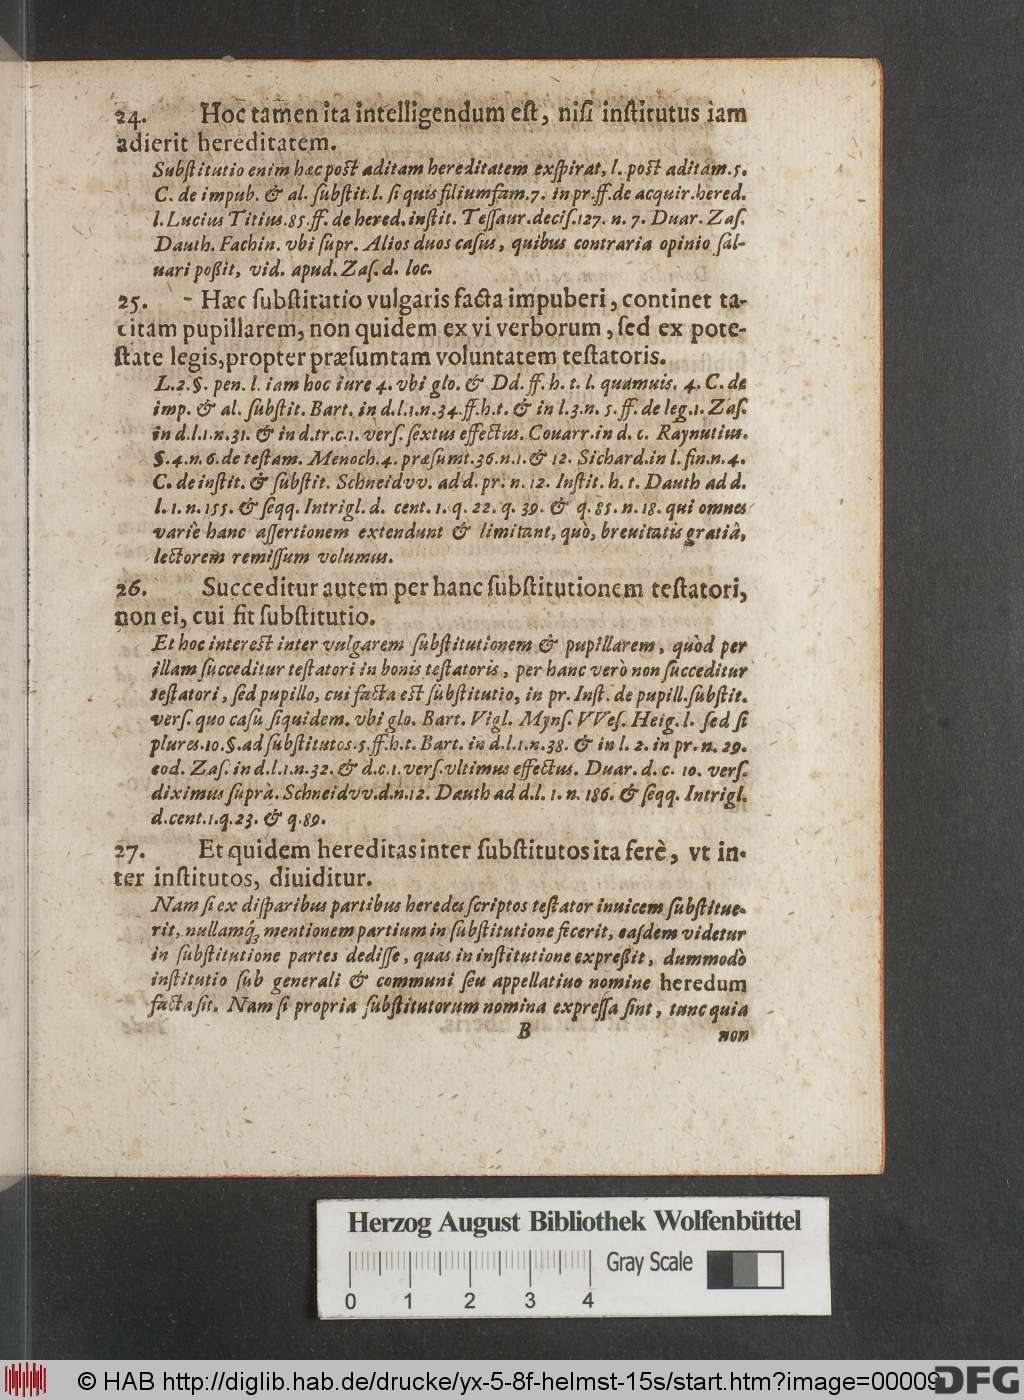 24. Hoc tamen ita intelligendum eſt, niſi inſtitutus iam
adierit hereditatem.
Subſtitutio enim hæc poſt aditam hereditatem exſpirat, l. poſt aditam.5.
C. de impub. & al. ſubſtit.l. ſi quis filiumfam.7. in pr.ff.de acquir.hered.
l.Lucius Titius.85.ff. de hered.inſtit. Teſſaur.deciſ.127. n. 7. Duar. Zaſ.
Dauth. Fachin. vbi ſupr. Alios duos caſus, quibus contraria opinio ſal-
uari poßit, vid. apud. Zaſ. d. loc.
25. - Hæc ſubſtitutio vulgaris facta impuberi, continet ta-
citam pupillarem, non quidem ex vi verborum, ſed ex pote-
ſtate legis, propter præſumtam voluntatem teſtatoris.
L.2.§. pen. l. iam hoc iure 4. vbi glo. & Dd. ff. h. t. l. quamuis. 4. C. de
imp. & al. ſubſtit. Bart. in d.l.1.n.34.ff.h.t. & in l.3.n. 5.ff. de leg.1. Zaſ.
in d.l.1.n.31. & in d.tr.c.1. verſ. ſextus effectus. Couarr.in d. c. Raynutius.
§.4.n.6.de teſtam. Menoch.4. præſumt.36.n.1.& 12. Sichard.in l.fin.n.4.
C. de inſtit. & ſubſtit. Schneidvv. ad d. pr. n. 12. Inſtit. h. t. Dauth ad d.
l. 1. n. 155. & ſeqq. Intrigl. d. cent. 1. q. 22. q. 39. & q. 85. n. 18. qui omnes
variè hanc aſſertionem extendunt & limitant, quò, breuitatis gratiâ,
lectorem remiſſum volumus.
26. Succeditur autem per hanc ſubſtitutionem teſtatori,
non ei, cui fit ſubſtitutio.
Et hoc intereſt inter vulgarem ſubſtitutionem & pupillarem, quòd per
illam ſucceditur teſtatori in bonis teſtatoris, per hanc verò non ſucceditur
teſtatori, ſed pupillo, cui facta eſt ſubſtitutio, in pr. Inſt. de pupill.ſubſtit.
verſ. quo caſu ſiquidem. vbi glo. Bart. Vigl. Mynſ. VVeſ. Heig. l. ſed ſi
plures.10.§.ad ſubſtitutos.5.ff.h.t. Bart. in d.l.1.n.38. & in l. 2. in pr. n. 29.
eod. Zaſ. in d.l.1.n.32. & d.c.1.verſ.vltimus effectus. Duar. d. c. 10. verſ.
diximus ſuprà. Schneidvv.d.n.12. Dauth ad d.l. 1. n. 186. & ſeqq. Intrigl.
d.cent.1.q.23. & q.89.
27. Et quidem hereditas inter ſubſtitutos ita ferè, vt in-
ter inſtitutos, diuiditur.
Nam ſi ex diſparibus partibus heredes ſcriptos teſtator inuicem ſubſtitue-
rit, nullamq́ꝫ mentionem partium in ſubſtitutione fecerit, eaſdem videtur
in ſubſtitutione partes dediſſe, quas in inſtitutione expreßit, dummodò
inſtitutio ſub generali & communi ſeu appellatiuo nomine heredum
facta ſit. Nam ſi propria ſubſtitutorum nomina expreſſa ſint, tunc quia
B
non
Herzog August Bibliothek Wolfenbüttel
Gray Scale
0 1 2 3 4
© HAB http://diglib.hab.de/drucke/yx-5-8f-helmst-15s/start.htm?image=00009
DFG